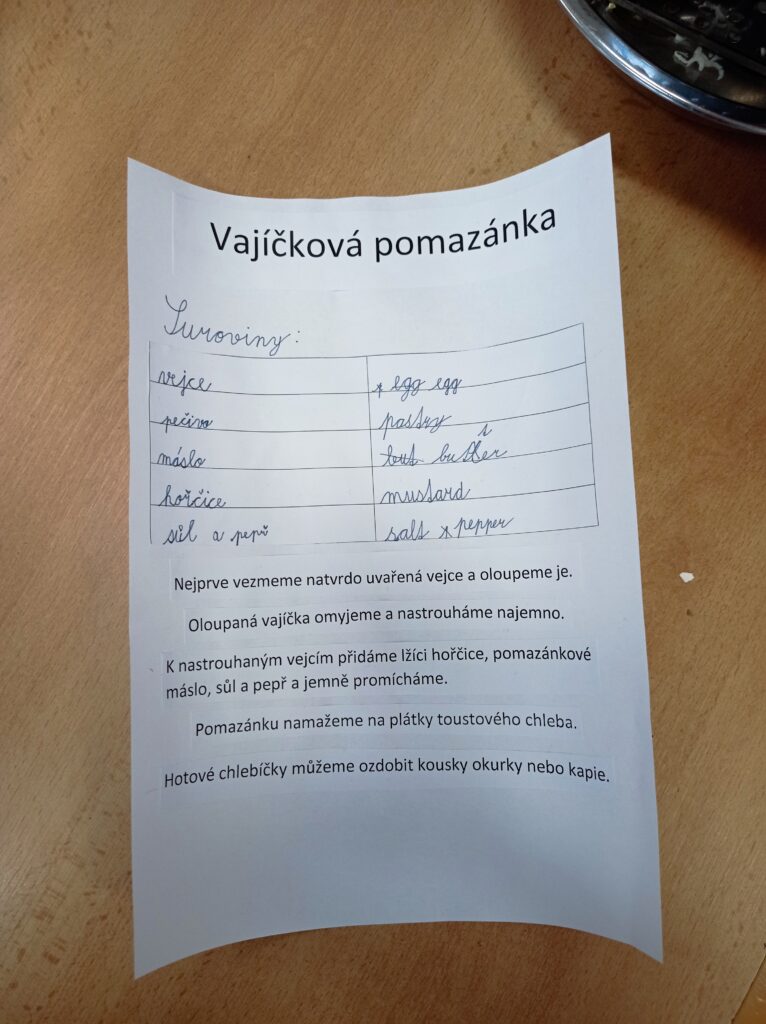 Vajíčková pomazánka
Suroviny:
vejce egg egg
pečivo pastry
máslo but butter
hořčice mustard
sůl a pepř salt pepper
Nejprve vezmeme natvrdo uvařená vejce a oloupeme je.
Oloupaná vajíčka omyjeme a nastrouháme najemno.
K nastrouhaným vejcím přidáme lžíci hořčice, pomazánkové
máslo, sůl a pepř a jemně promícháme.
Pomazánku namažeme na plátky toustového chleba.
Hotové chlebíčky můžeme ozdobit kousky okurky nebo kapie.